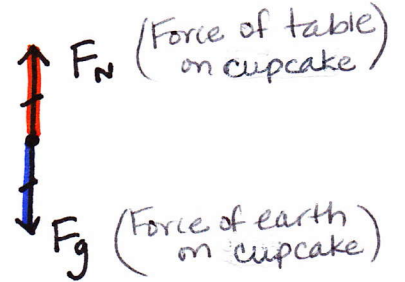 F_N (Force of table
on cupcake)
F_g (Force of earth
on cupcake)